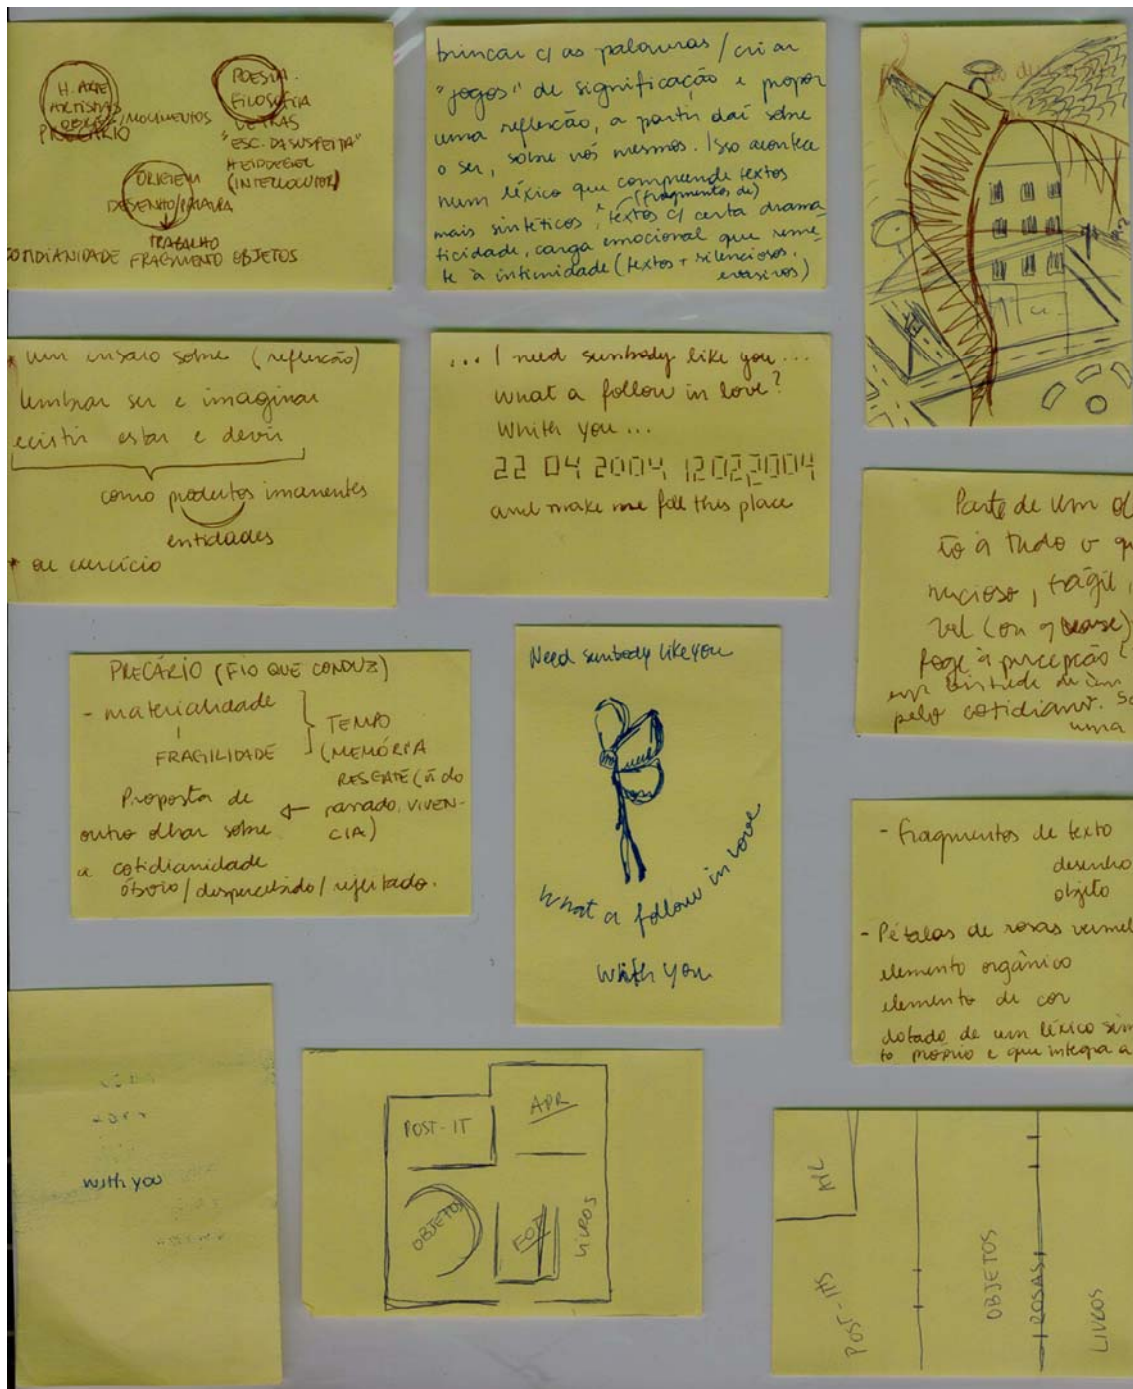 H. ARTE
ARTISTAS
OBRAS/MOVIMENTOS
PRECÁRIO
POESIA.
FILOSOFIA
LETRAS
"ESC. DA SUSPEITA"
HEIDEGGER
(INTERLOCUTOR)
ORIGEM
DESENHO/PALAVRA
TRABALHO
COTIDIANIDADE FRAGMENTO OBJETOS
brincar c/ as palavras / criar
"jogos" de significação e propor
uma reflexão, a partir daí sobre
o ser, sobre nós mesmos. Isso acontece
num léxico que compreende textos
mais sintéticos, e (fragmentos de) textos c/ certa drama-
ticidade, carga emocional que reme-
te à intimidade (textos + silenciosos,
evasivos)
um ensaio sobre (reflexão)
lembrar ser e imaginar
existir estar e devir
como produtos imanentes
entidades
ou exercício
... I need sunbody like you...
What a follow in love?
Whith you...
22 04 2004 12022004
and make me fall this place
Parte de um ol
to à tudo o q
nucioso, frágil,
vel (ou quase)
foge à percepção
pelo cotidiano. S
uma
PRECÁRIO (FIO QUE CONDUZ)
- materialidade
FRAGILIDADE
TEMPO
(MEMÓRIA
RESGATE (ñ do
passado, VIVEN-
CIA)
Proposta de
outro olhar sobre
a cotidianidade
óbvio / despercebido / rejeitado.
Need sunbody like you
What a follow in love
Whith you
- fragmentos de texto
desenho
objeto
- Pétalas de rosas vermel
elemento orgânico
elemento de cor
dotado de um léxico sim
to próprio e que integra a
with you
POST-IT
APR
OBJETOS
FOT
LIVROS
POST-ITS
OBJETOS
ROSAS
LIVROS